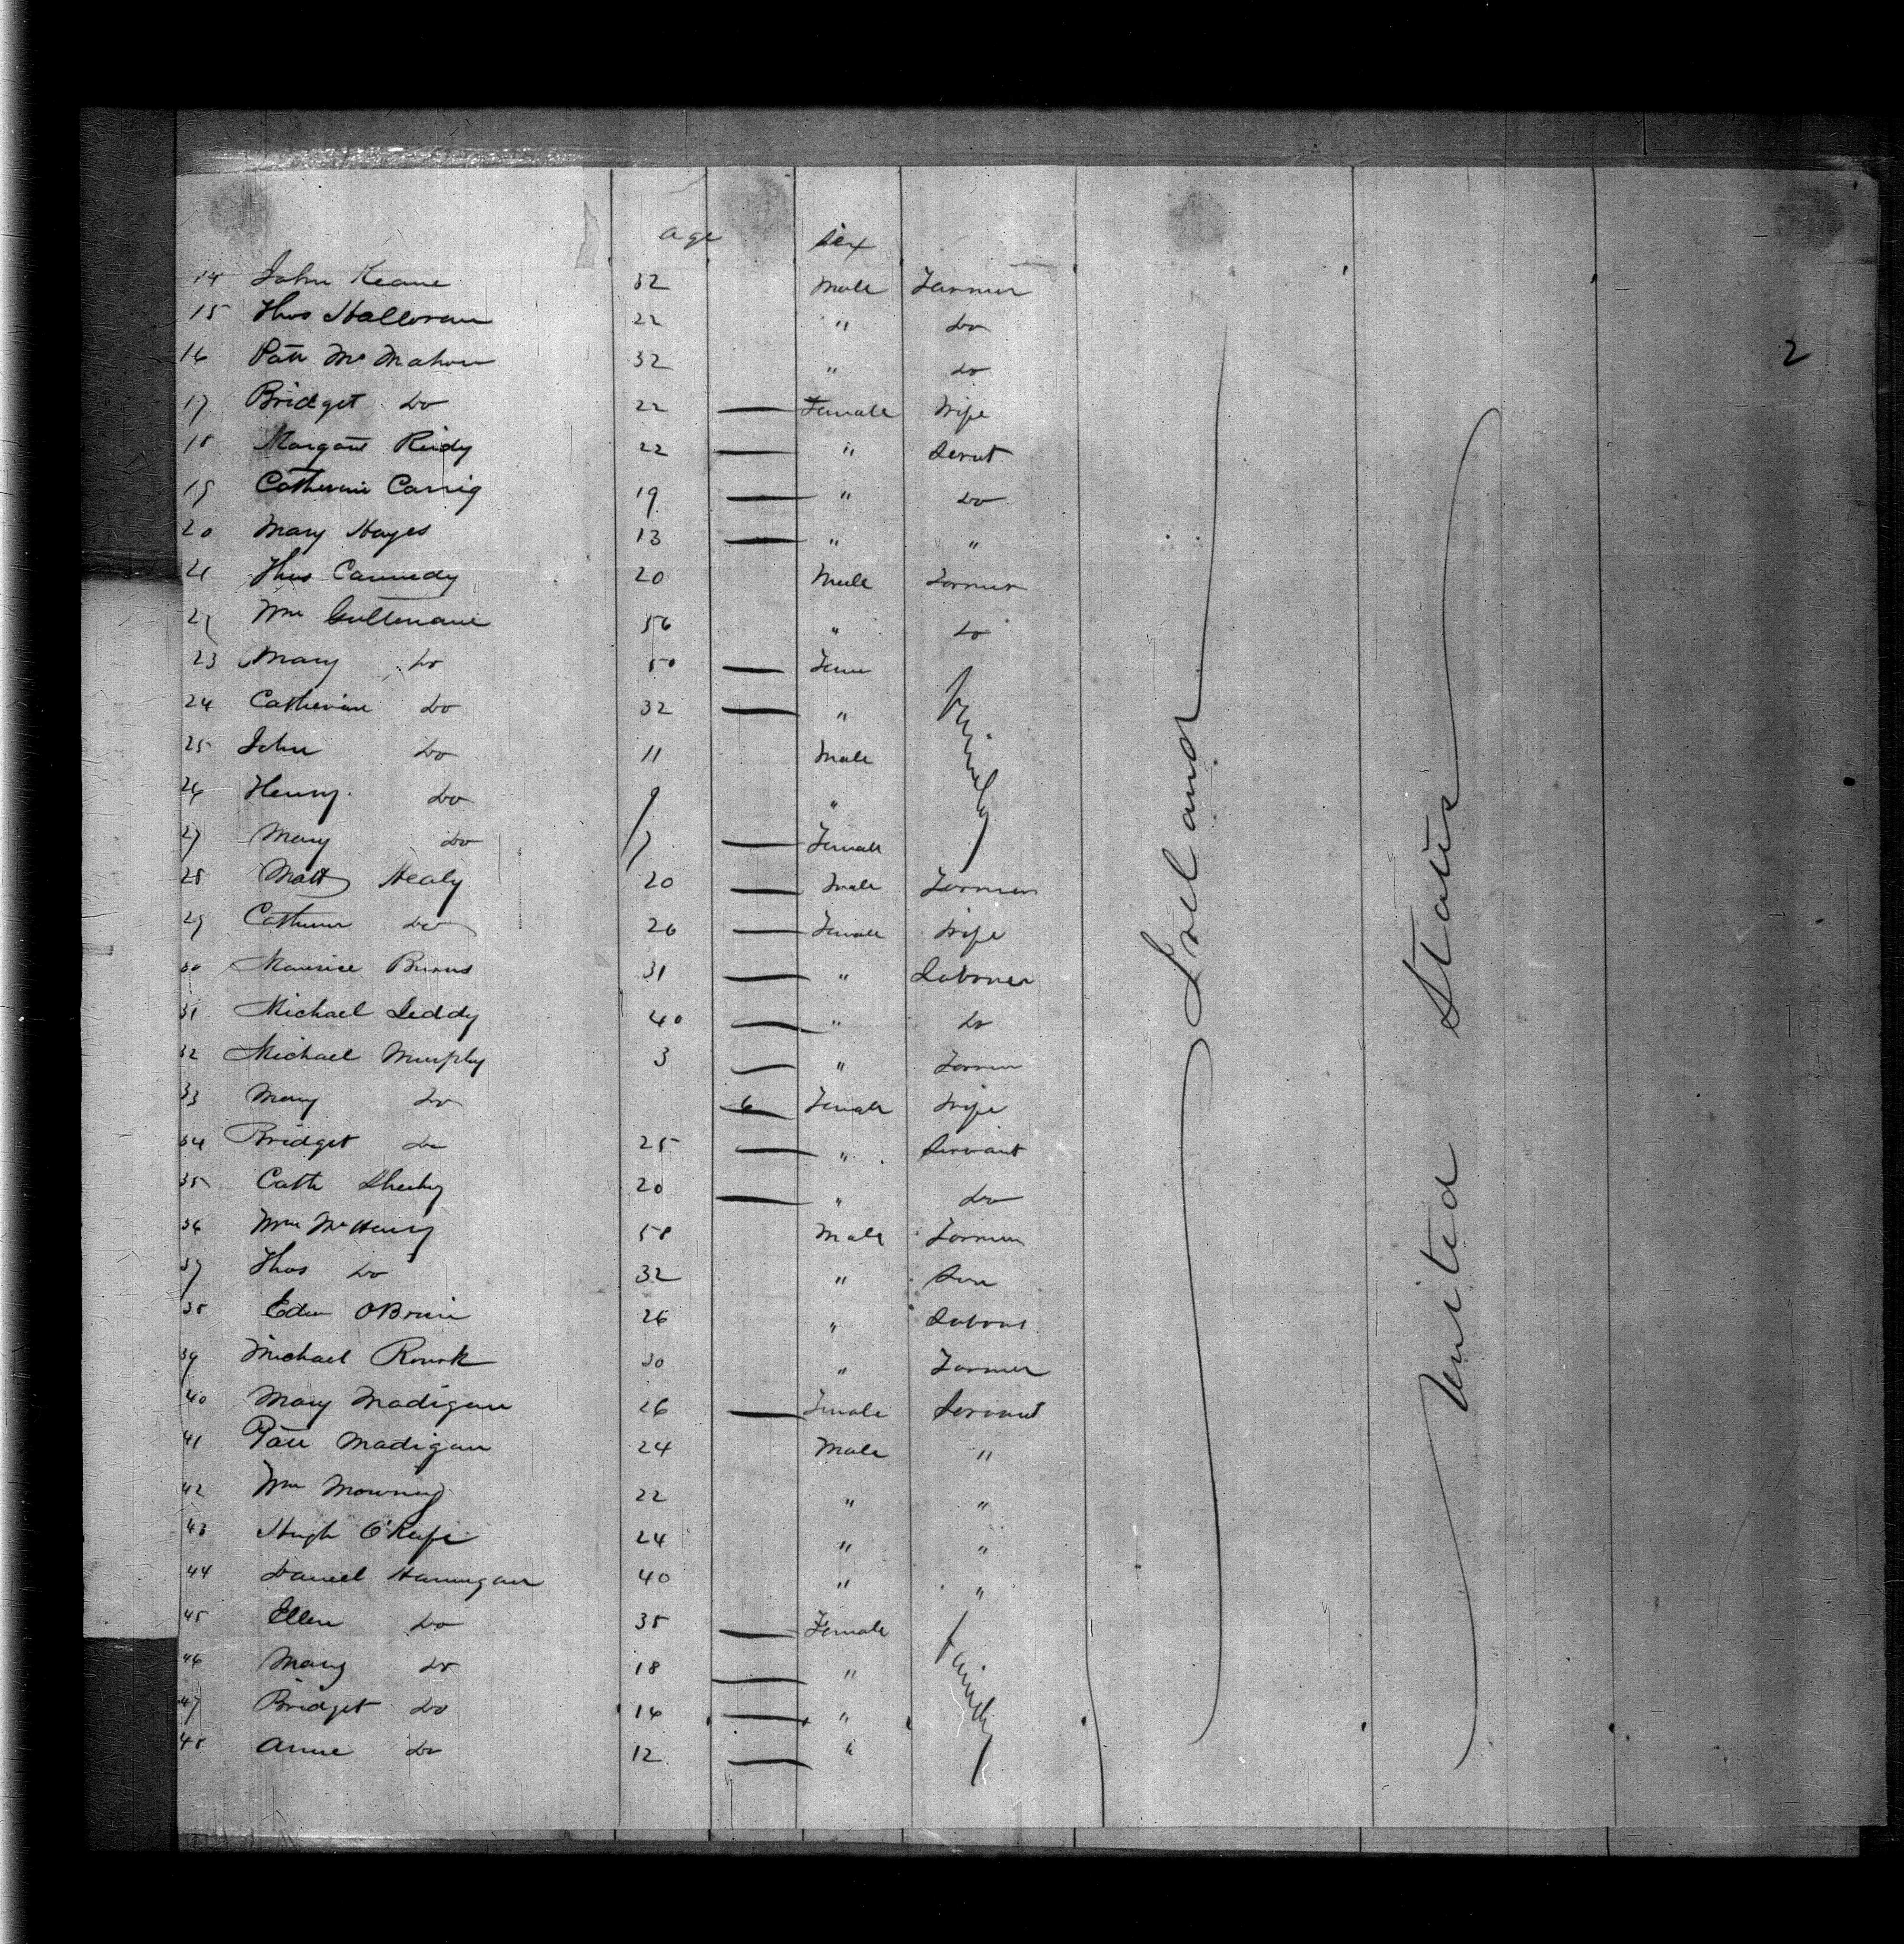 2
age sex
14 John Keane 32 Male Farmer
15 Thos Halloran 22 " Do
16 Patt McMahon 32 " Do
17 Bridget Do 22 — Female Wife
18 Margaret Reidy 22 — " Servt
19 Catherine Carrig 19 — " Do
20 Mary Hayes 13 — " "
21 Thos Cannedy 20 Male Farmer
22 Wm Cullenane 56 " Do
23 Mary Do 50 — Fem
24 Catherine Do 32 — "
25 John Do 11 Male
Family
26 Henry Do 9 "
27 Mary Do 7 — Female
28 Matt Healy 20 — Male Farmer
29 Catherine Do 26 — Female Wife
30 Maurice Burns 31 — " Labourer
31 Michael Leddy 40 — " Do
32 Michael Murphy 3 — " Farmer
33 Mary Do 6 Female Wife
34 Bridget Do 25 — " Servant
35 Cath Sheehy 20 — " Do
36 Wm McHenry 58 Male Farmer
37 Thos Do 32 " Son
38 OBrien 26 " Labour
39 Michael Rourk 30 " Farmer
40 Mary Madigan 26 — Female Servant
41 Patt Madigan 24 Male "
42 Wm 22 " "
43 Hugh O'Keefe 24 " "
44 Daniel Hannigan 40 " "
45 Ellen Do 35 — Female
46 Mary Do 18 — "
Family
47 Bridget Do 14 — "
48 Anne Do 12 — "
Ireland
United States